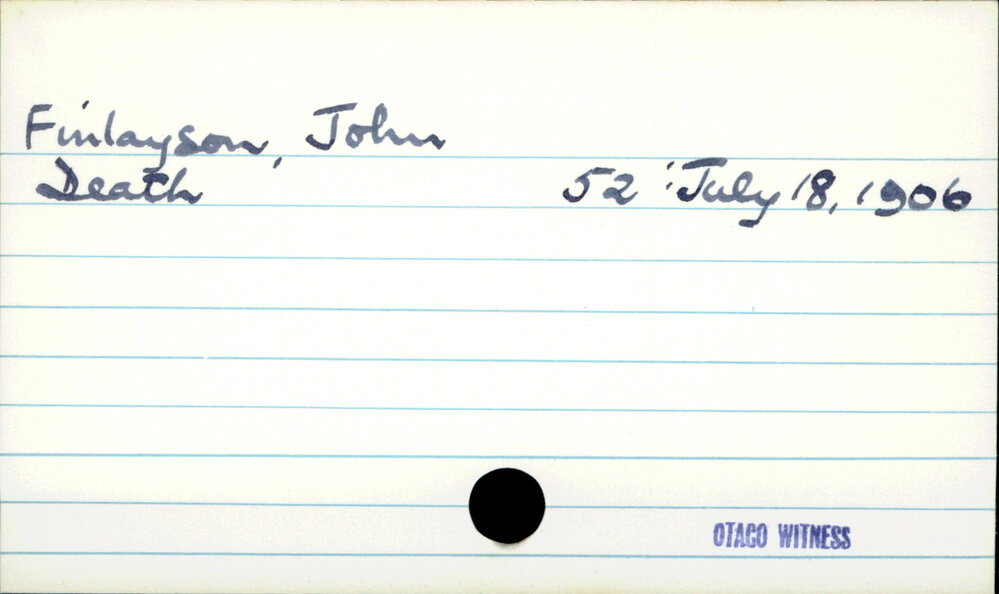 Finlayson, John
Death 52 : July 18, 1906
OTAGO WITNESS